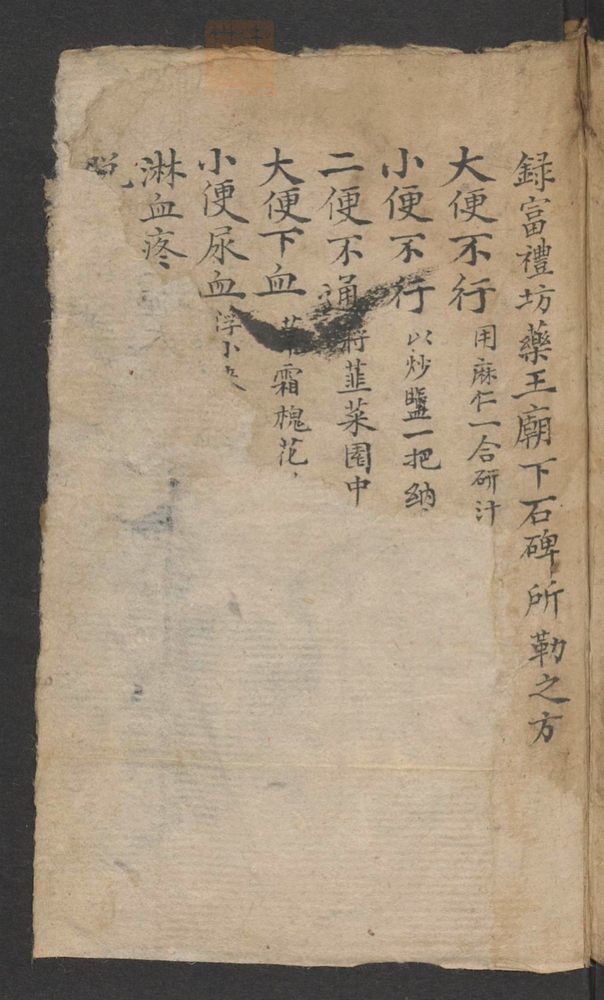 録富禮坊藥王廟下石碑所勒之方
大便不行 用麻仁一合研汁
小便不行 以炒鹽一把納
二便不通 將韮菜園中
大便下血 霜槐花
小便尿血 浮小
淋血疼
脱